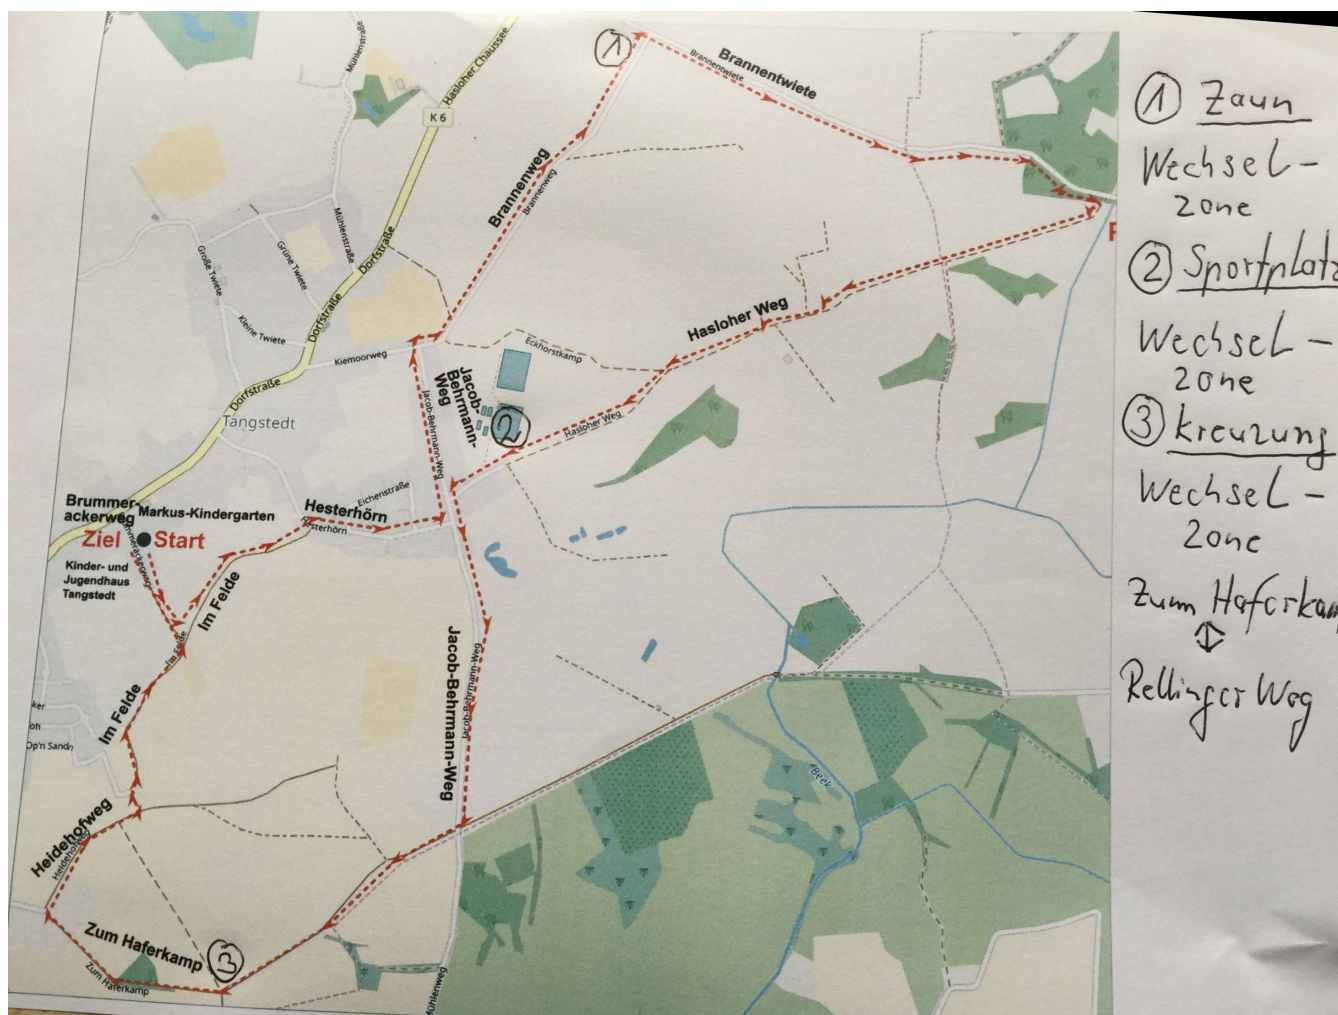 Mühlenstraße
Hasloher Chaussee
K 6
①
Brannentwiete
Brannentwiete
Brannenweg
Brannenweg
Große Twiete
Grüne Twiete
Mühlenstraße
Dorfstraße
Dorfstraße
Kleine Twiete
Kiemoorweg
Dorfstraße
Tangstedt
Hasloher Weg
Eckhorstkamp
Jacob-
Behrmann-
Weg
Jacob-Behrmann-Weg
②
Hasloher Weg
Eichenstraße
Hesterhörn
Hesterhörn
Brummer-
ackerweg
Markus-Kindergarten
Ziel
Start
Kinder- und
Jugendhaus
Tangstedt
Im Felde
Im Felde
Im Felde
Jacob-Behrmann-Weg
Jacob-Behrmann-Weg
Op'n Sandn
Heidehofweg
Heidehofweg
Beek
Zum Haferkamp
Zum Haferkamp
③
Mühlenweg
① Zaun
Wechsel-
zone
② Sportplatz
Wechsel-
zone
③ Kreuzung
Wechsel-
zone
Zum Haferkam
↕
Rellinger Weg